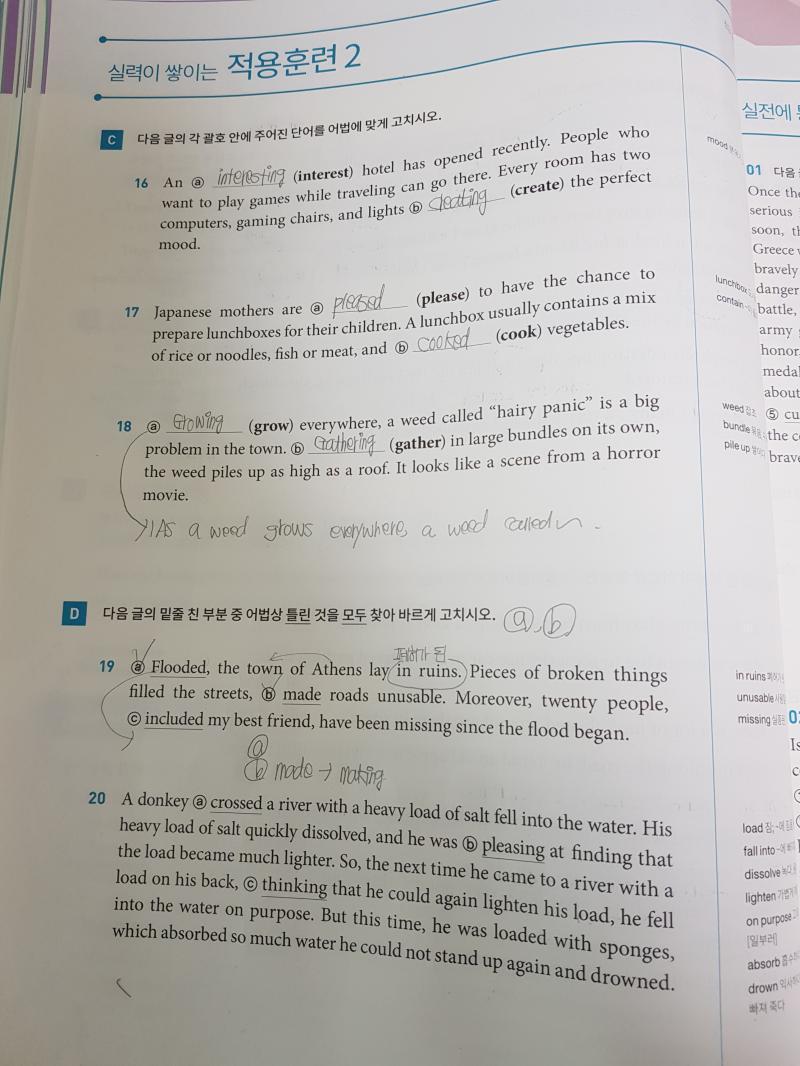 실력이 쌓이는 적용훈련 2
C 다음 글의 각 괄호 안에 주어진 단어를 어법에 맞게 고치시오.
16 An ⓐ interesting (interest) hotel has opened recently. People who
want to play games while traveling can go there. Every room has two
computers, gaming chairs, and lights ⓑ creating (create) the perfect
mood.
17 Japanese mothers are ⓐ pleased (please) to have the chance to
prepare lunchboxes for their children. A lunchbox usually contains a mix
of rice or noodles, fish or meat, and ⓑ cooked (cook) vegetables.
18 ⓐ Growing (grow) everywhere, a weed called “hairy panic” is a big
problem in the town. ⓑ Gathering (gather) in large bundles on its own,
the weed piles up as high as a roof. It looks like a scene from a horror
movie.
As a weed grows everywhere, a weed called
D 다음 글의 밑줄 친 부분 중 어법상 틀린 것을 모두 찾아 바르게 고치시오. ⓐ, ⓑ
폐허가 된
19 ⓐ Flooded, the town of Athens lay in ruins. Pieces of broken things
filled the streets, ⓑ made roads unusable. Moreover, twenty people,
ⓒ included my best friend, have been missing since the flood began.
ⓐ
ⓑ made → making
20 A donkey ⓐ crossed a river with a heavy load of salt fell into the water. His
heavy load of salt quickly dissolved, and he was ⓑ pleasing at finding that
the load became much lighter. So, the next time he came to a river with a
load on his back, ⓒ thinking that he could again lighten his load, he fell
into the water on purpose. But this time, he was loaded with sponges,
which absorbed so much water he could not stand up again and drowned.
mood
lunchbox
contain
weed 잡초
bundle
pile up
in ruins
unusable
missing
load 짐;
fall into
dissolve
lighten
on purpose
[일부러]
absorb
drown
빠져 죽다
실전에
01 다음
Once the
serious
soon, th
Greece
bravely
danger
battle,
army
honor.
medal
about
⑤ cu
the c
brave